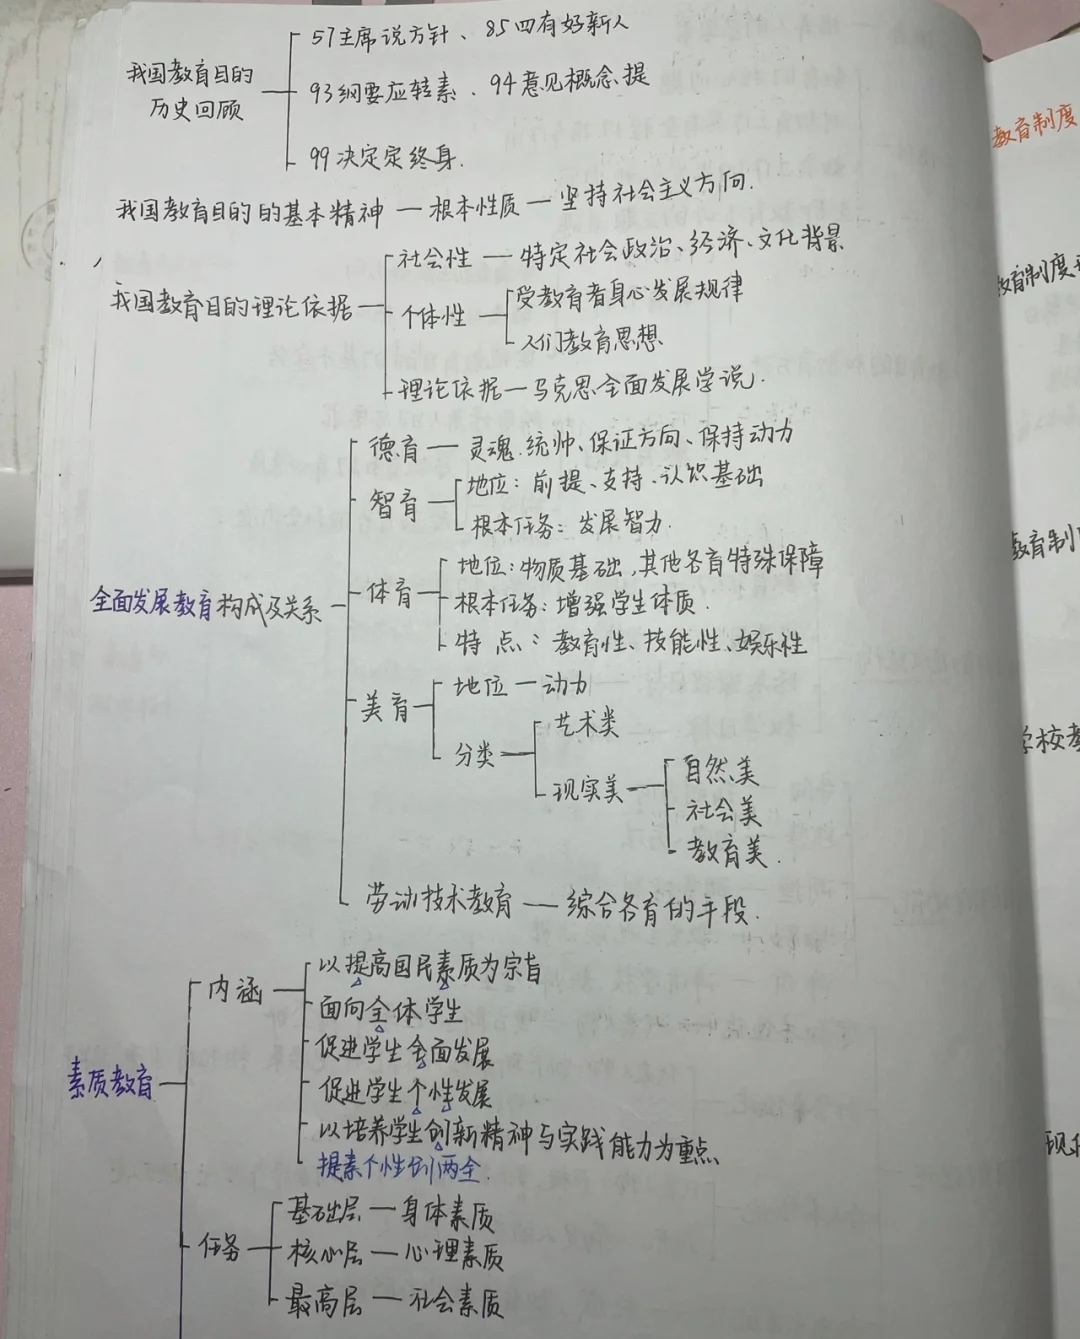 我国教育目的
历史回顾
57主席说方针、85四有好新人
93纲要应转素、94意见概念提
99决定定终身.
我国教育目的的基本精神—根本性质—坚持社会主义方向.
我国教育目的理论依据
社会性—特定社会政治、经济、文化背景
个体性
受教育者身心发展规律
人们教育思想
理论依据—马克思全面发展学说.
全面发展教育构成及关系
德育—灵魂.统帅、保证方向、保持动力
智育
地位:前提、支持、认识基础
根本任务:发展智力.
体育
地位:物质基础,其他各育特殊保障
根本任务:增强学生体质.
特点:教育性、技能性、娱乐性
美育
地位—动力
分类
艺术类
现实美
自然美
社会美
教育美.
劳动技术教育—综合各育的手段.
素质教育
内涵
以提高国民素质为宗旨
面向全体学生
促进学生全面发展
促进学生个性发展
以培养学生创新精神与实践能力为重点
提素个性创两全.
任务
基础层—身体素质
核心层—心理素质
最高层—社会素质
教育制度
教育制度
教育制
学校
现